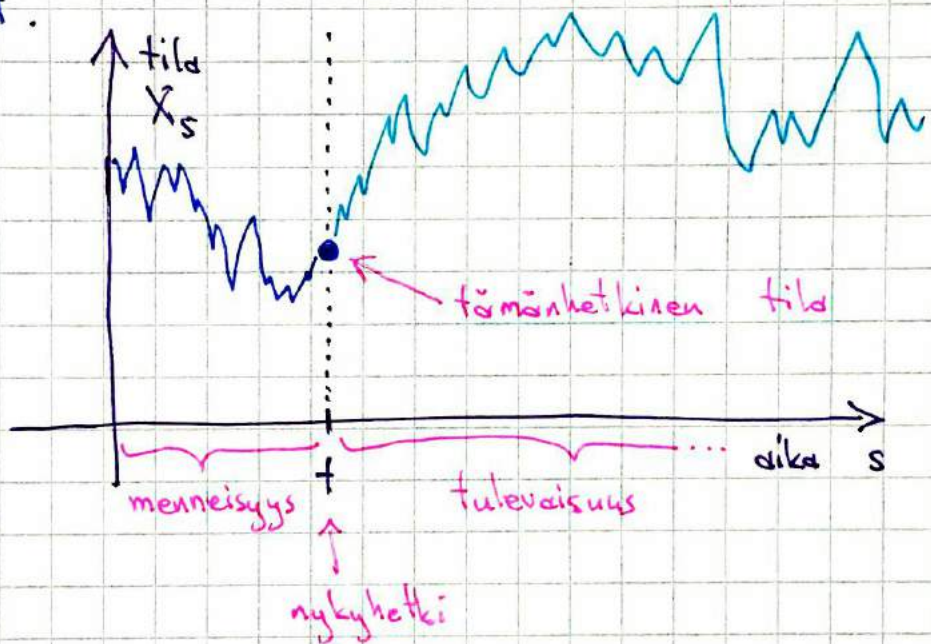 tila
X_s
tämänhetkinen tila
aika s
t
menneisyys
tulevaisuus
nykyhetki